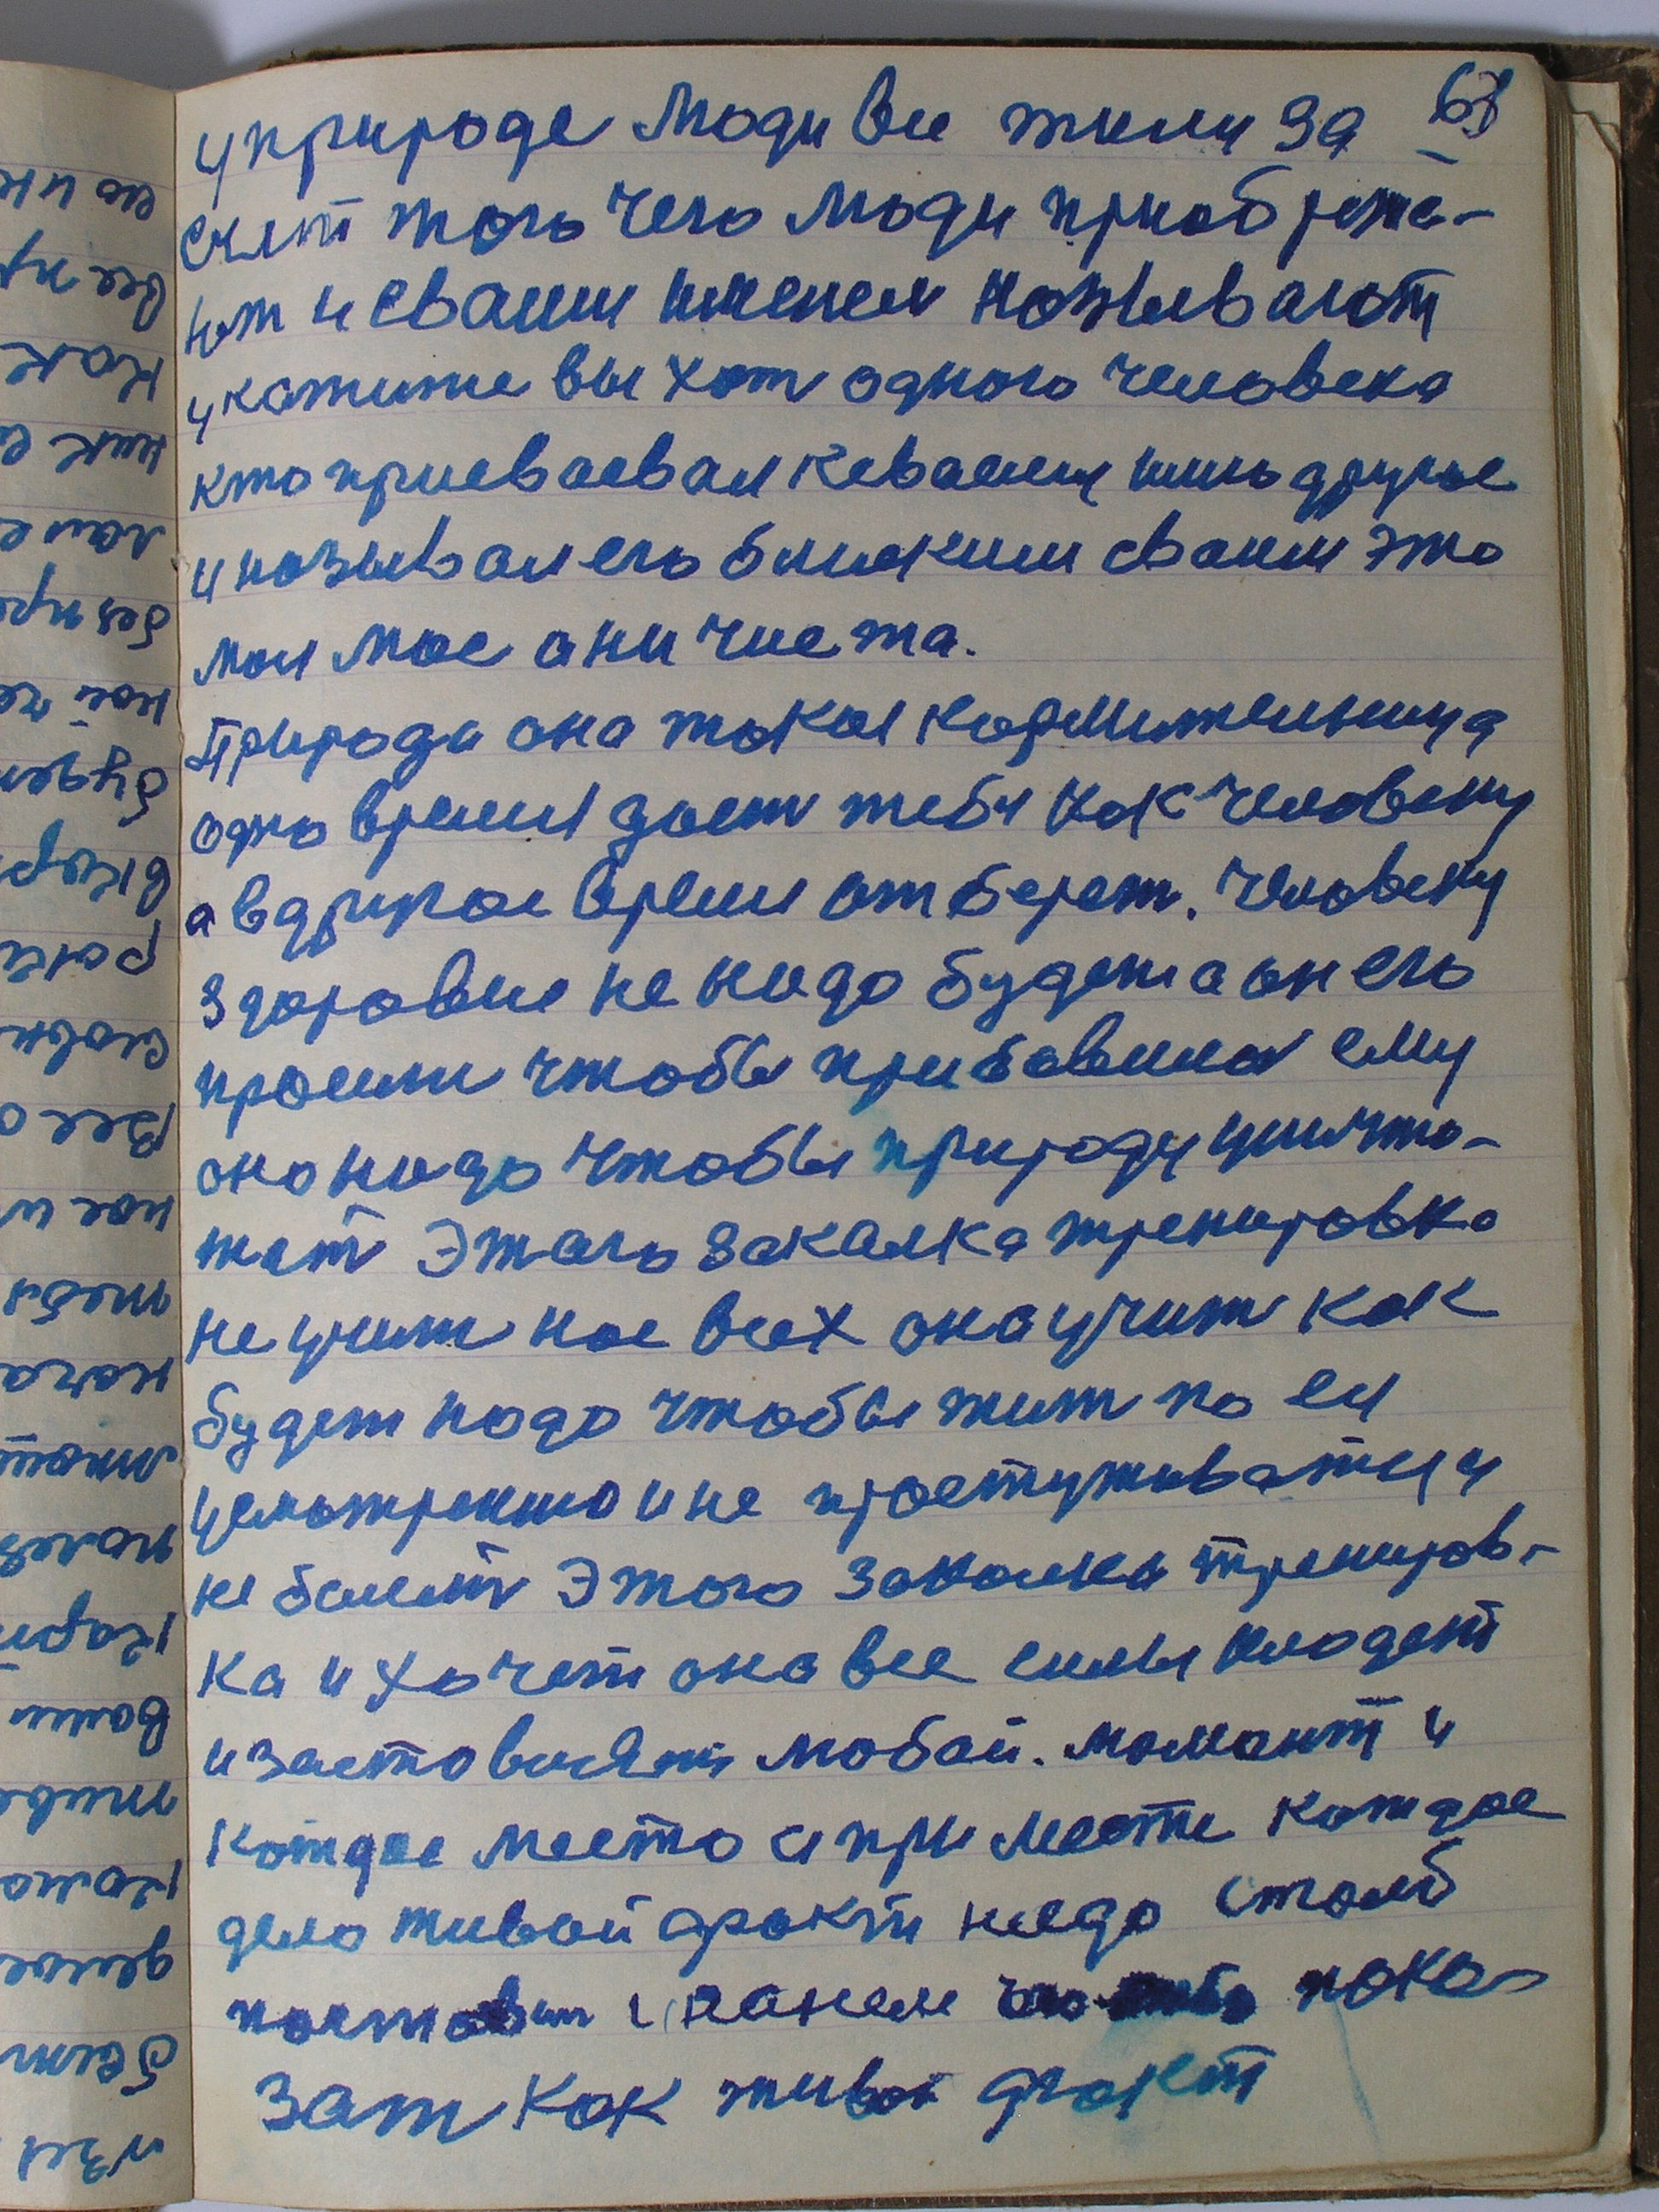 63
у природе люди все жили за
счет того чего люди приобрета-
ют и сваим именем называют
укажите вы хот одного человека
кто присваевал ксваему имю другое
и называл его близким сваим это
моя мое они чиста.
Природа она такая кормительница
одно время дает тебя как человеку
а вдругое время отберет. Человеку
здоровие не надо будет а он его
просит чтобы прибавила ему
оно надо чтобы природу уничто-
жат Этого закалка тренировка
не учит нас всех она учит как
будет надо чтобы жит по ея
и не простуживатся и
не болеть Этого закалка тренеров-
ка и хочет она все силы кладет
и заставляет любой. момант и
каждое место и при месте каждое
дело живой факт надо столб
поставит и на нем пока-
зат как живой факт